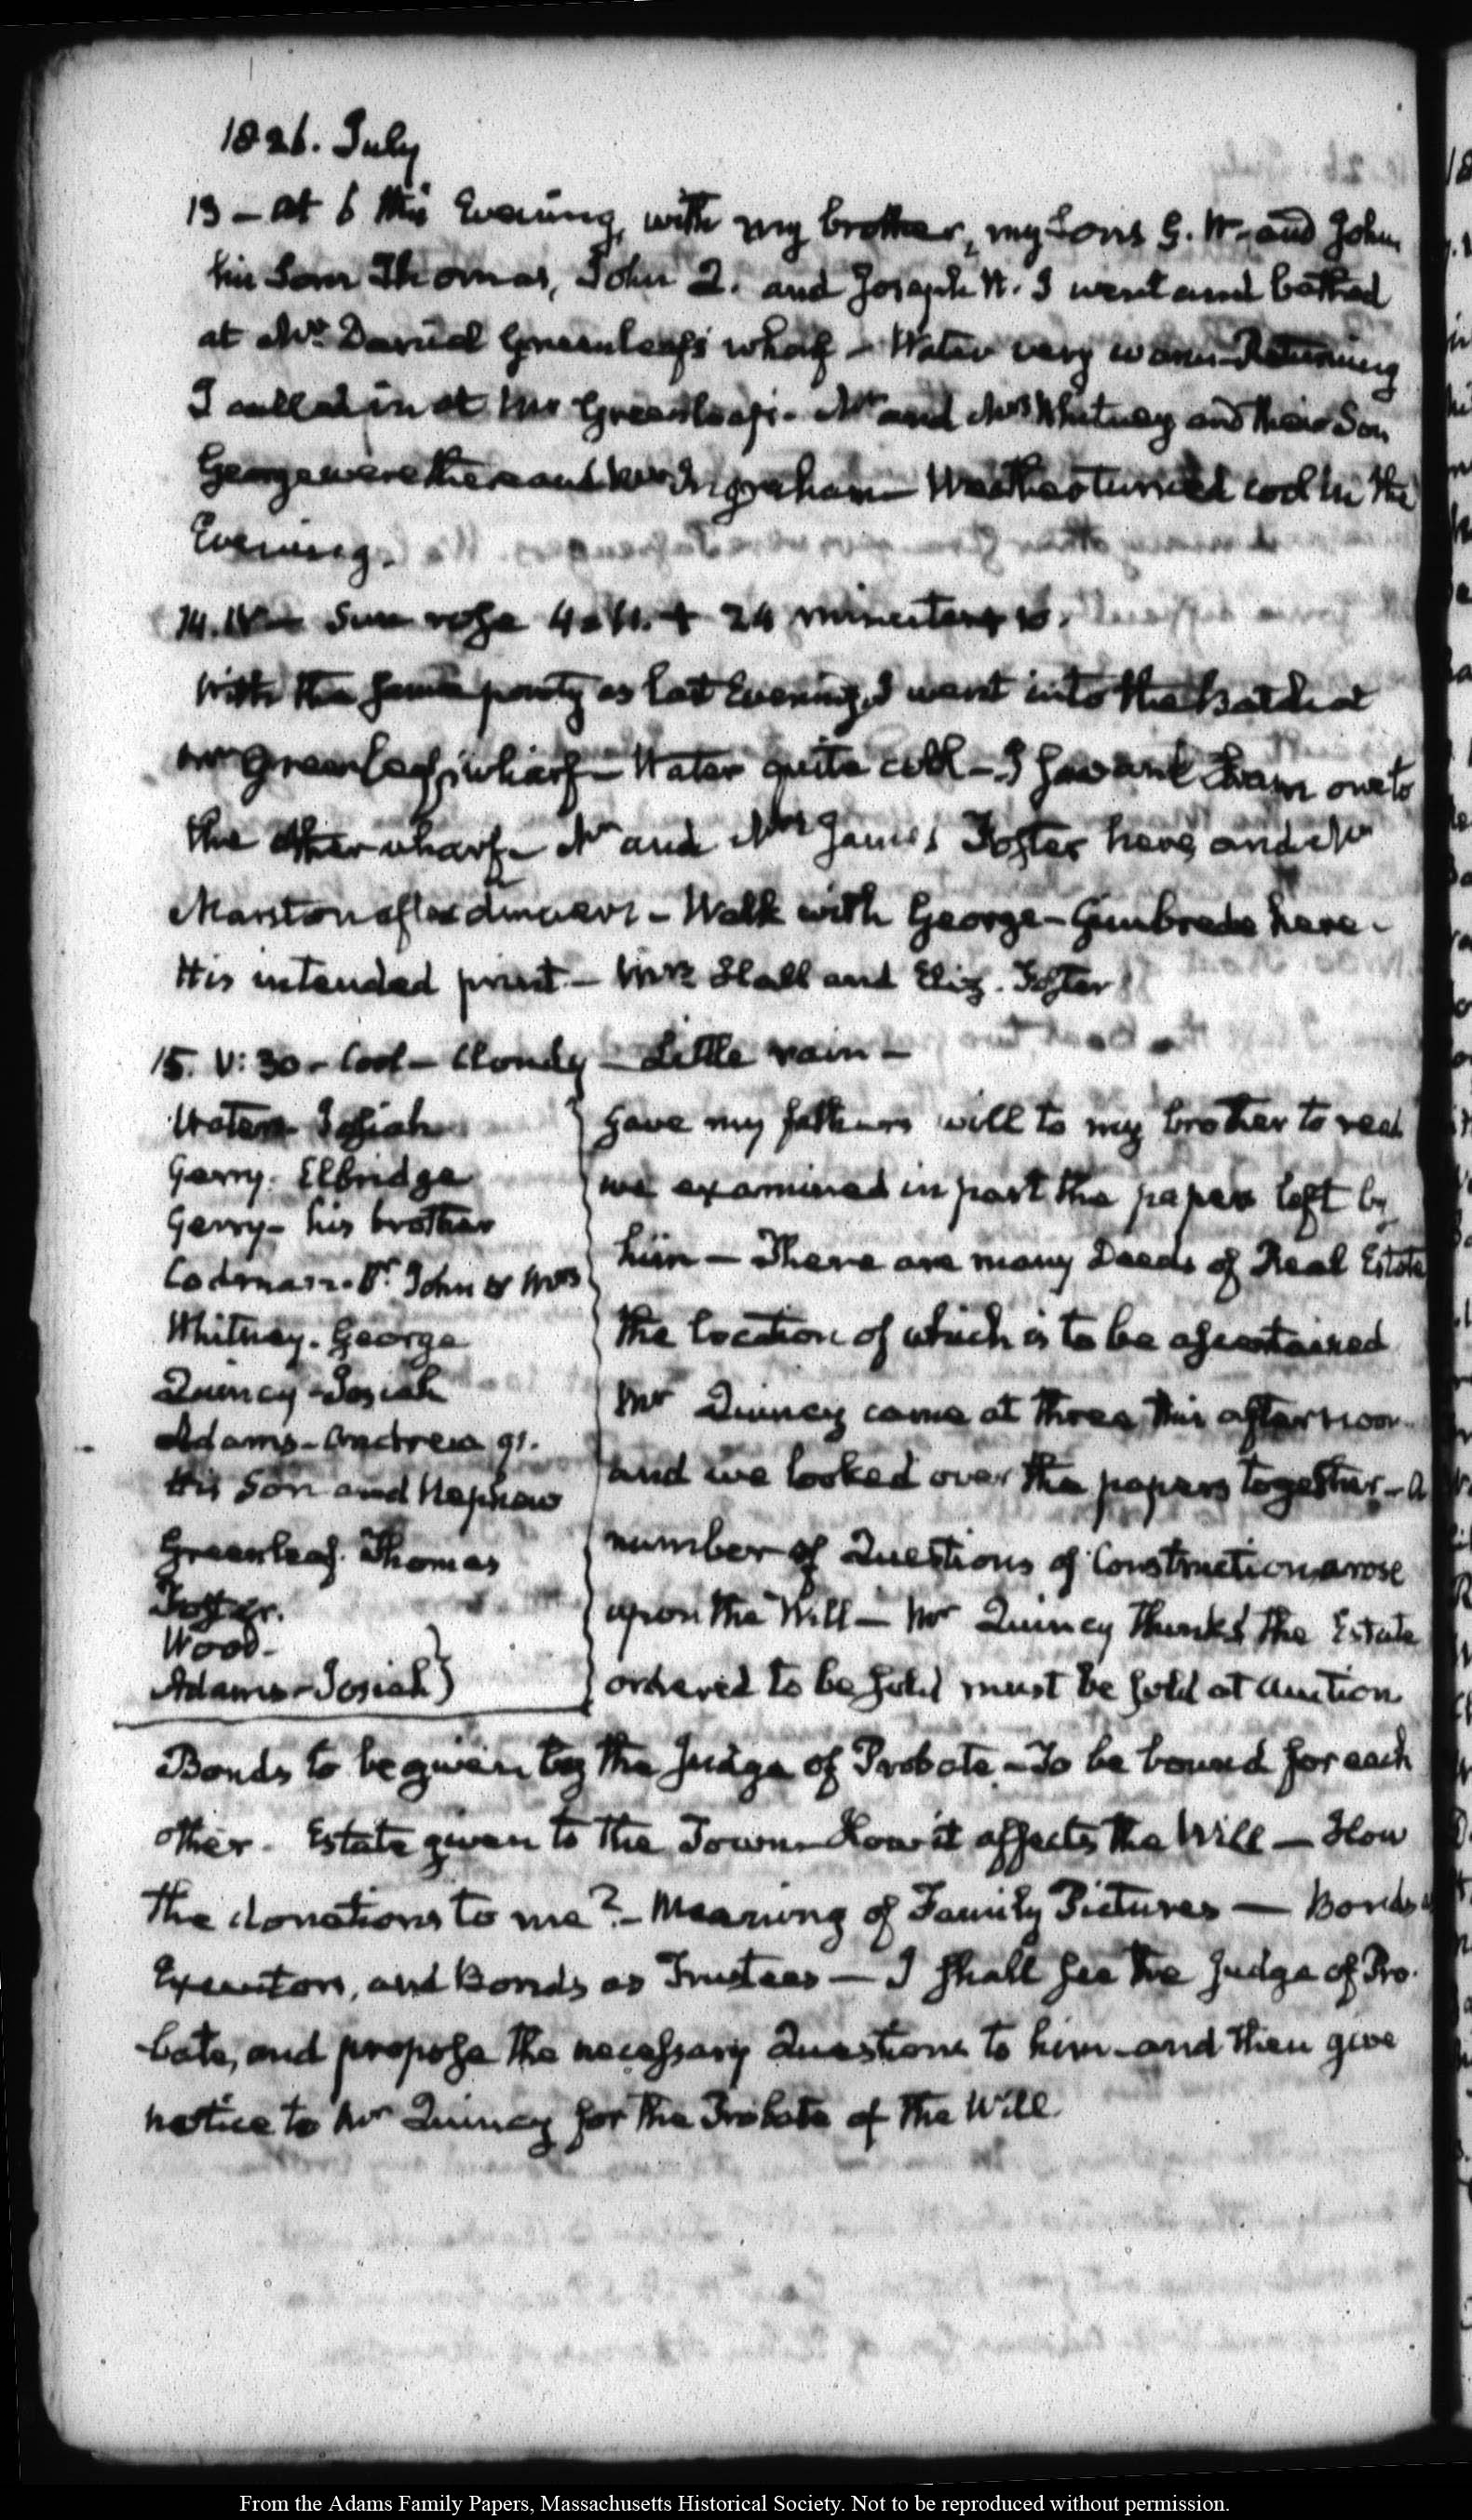 1826. July
13 – at 6 this Evening, with my brother, my Sons G. W. and John
his Sons Thomas, John Q. and Joseph H. I went and bathed
at Mr. Daniel Greenleaf's wharf – Water very warm – Returning
I called in at Mr Greenleaf's – Mr and Mrs Whitney and their Son
George were there and Ingraham – Weather turned cool in the
Evening.
14. IV – Sun rose 4. + 24 minutes
With the same party as last Evening, I went into the bath at
Mr Greenleaf's wharf – Water quite cold – I swam one to
the other wharf – Mr and Mrs James Foster here, and Mr
Marston after dinner – Walk with George – Gimbrede here –
His intended print – Mrs Hall and Eliz. Foster
15. V:30 – Cool – Cloudy – Little rain –
Waters Josiah
Gerry. Elbridge
Gerry – his brother
Codman. Dr. John & Mrs
Whitney. George
Quincy – Josiah
Adams – Andrew 91.
His Son and Nephew
Greenleaf. Thomas
Foster.
Wood –
Adams – Josiah
Gave my father's will to my brother to read
we examined in part the papers left by
him – There are many Deeds of Real Estate
the location of which is to be ascertained
Mr Quincy came at three this afternoon
and we looked over the papers together – A
number of Questions of Construction arose
upon the Will – Mr Quincy thinks the Estate
ordered to be sold must be sold at Auction
Bonds to be given to the Judge of Probate – To be bound for each
other. Estate given to the Town – How it affects the Will – How
the donations to me? – Meaning of Family Pictures — Bonds as
Executors, and Bonds as Trustees — I shall see the Judge of Pro-
bate, and propose the necessary Questions to him – and then give
notice to Mr Quincy for the Probate of the Will.
From the Adams Family Papers, Massachusetts Historical Society. Not to be reproduced without permission.